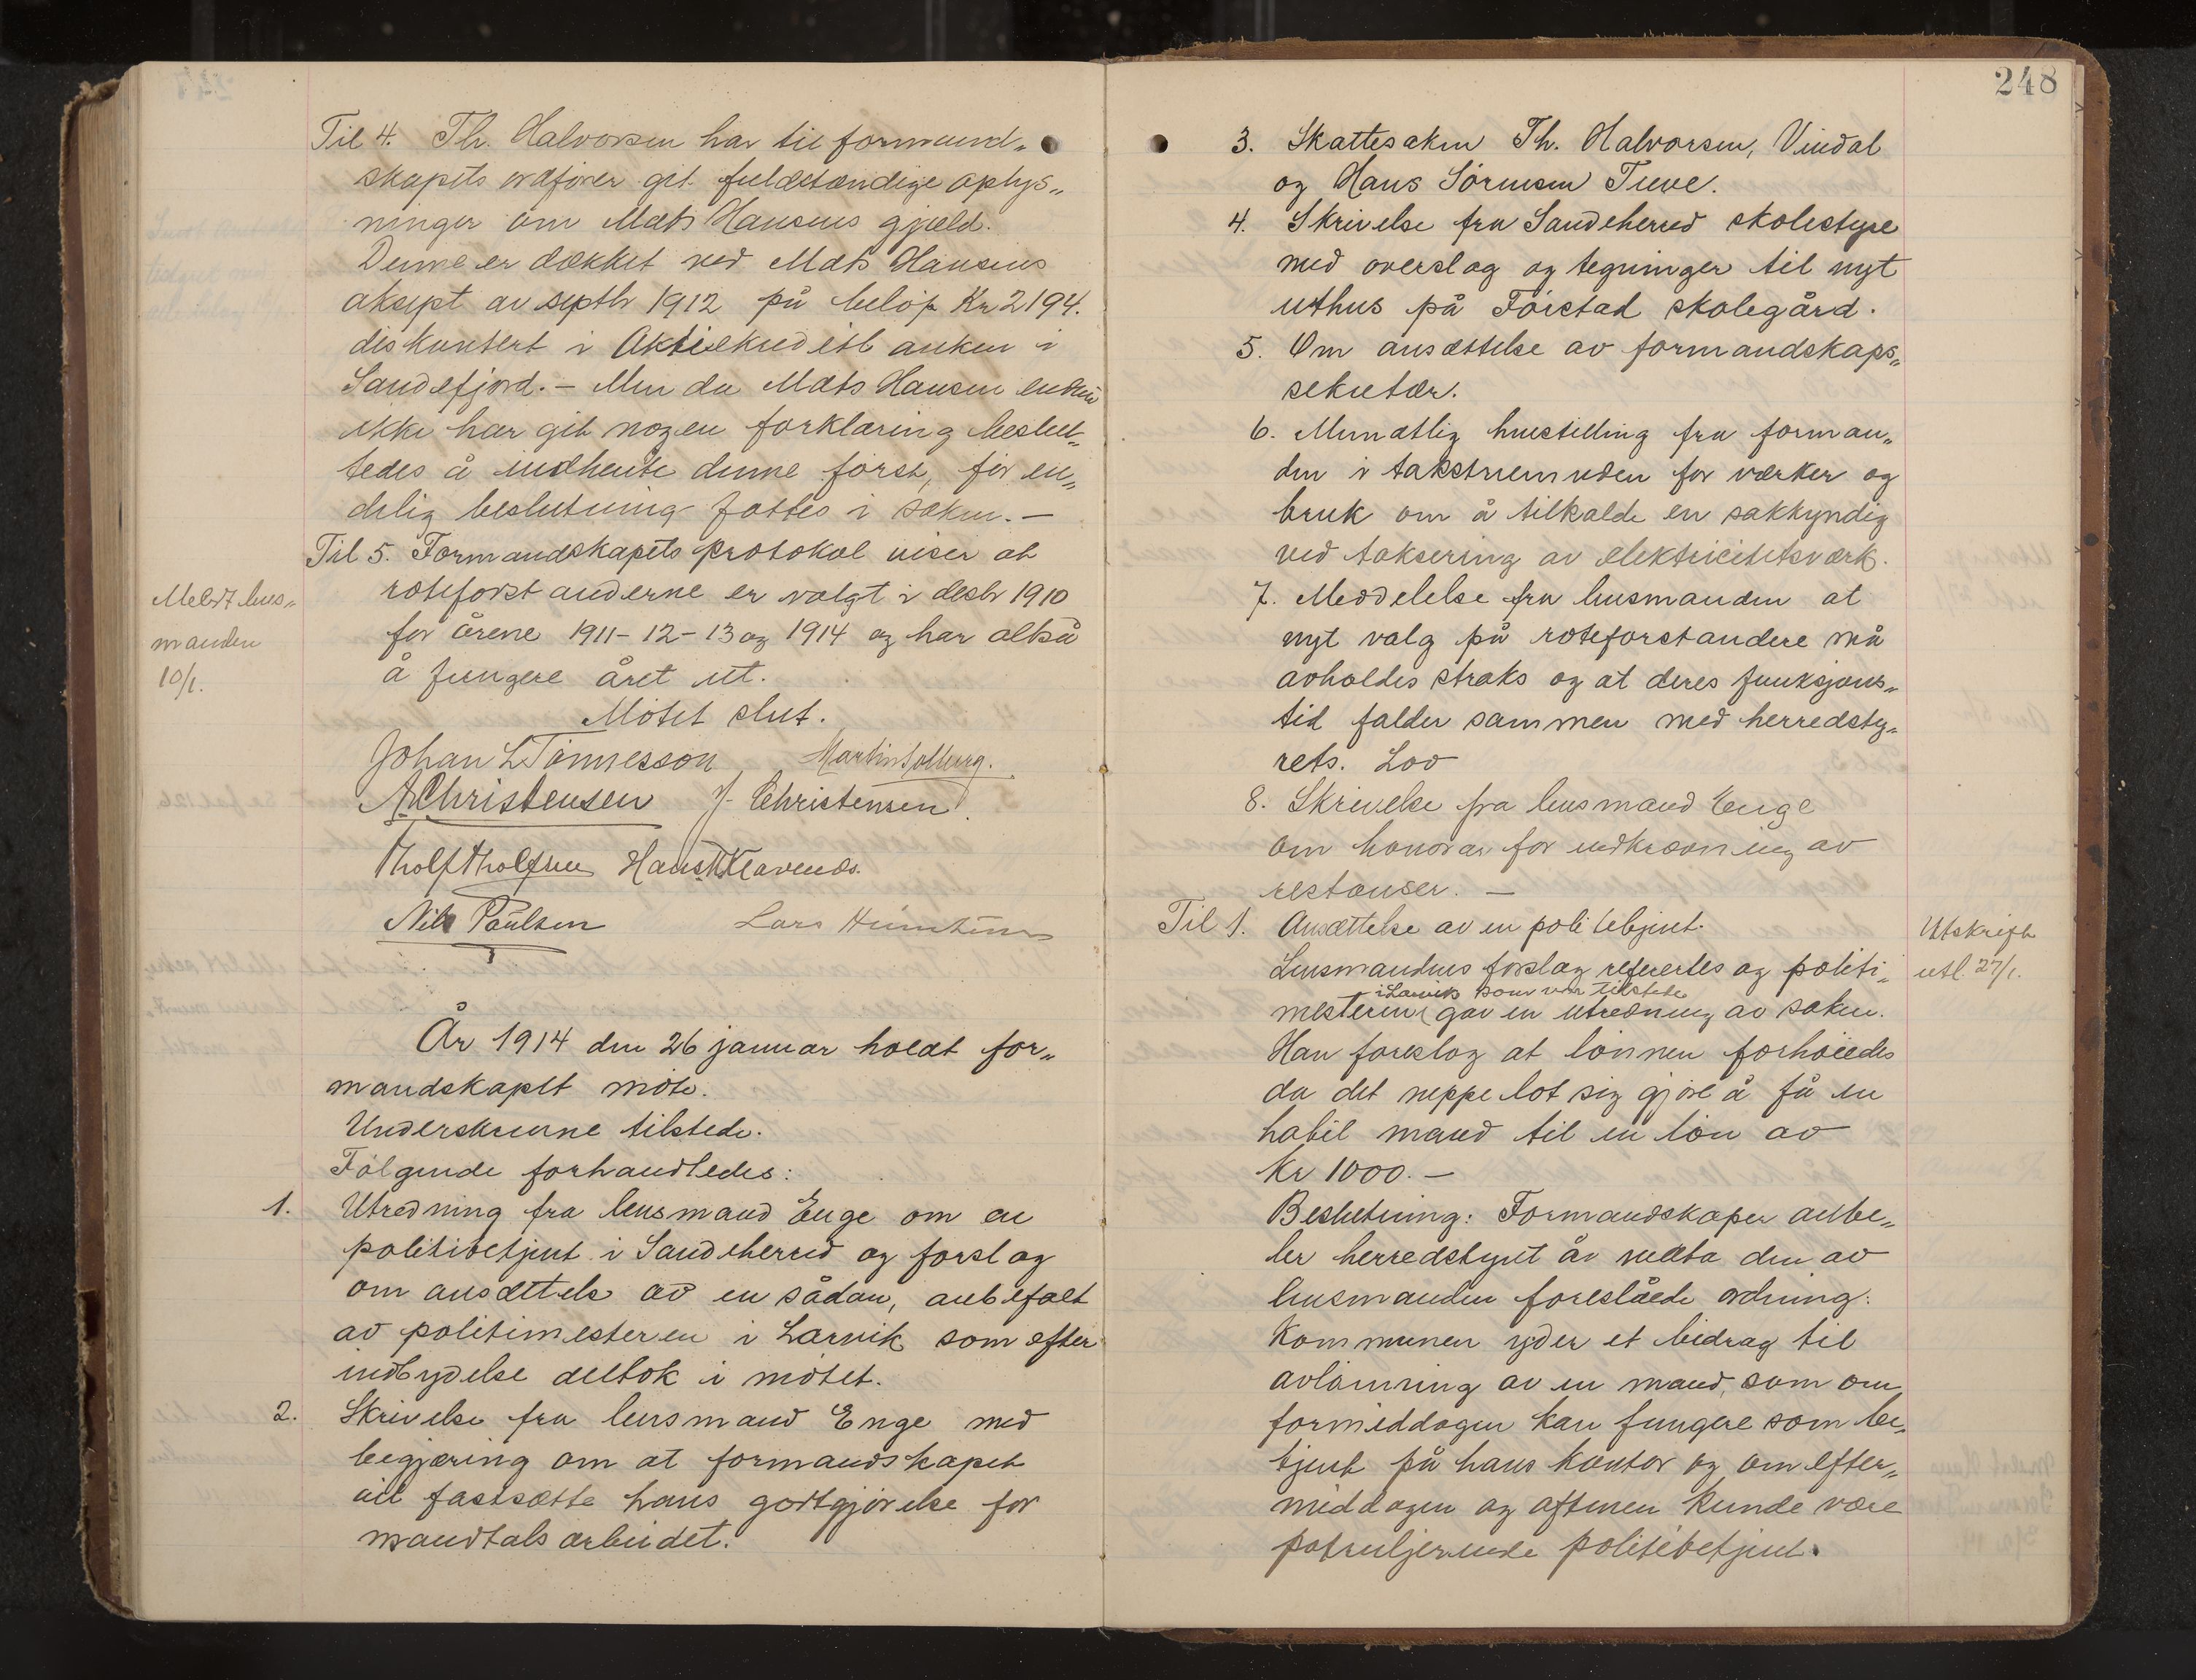 Til 4. Th. Halvorsen har til formand„
skapets ordfører git fuldstændige oplys„
ninger om Mats Hansens gjæld.
Denne er dækket ved Mats Hansens
aksept av septbr 1912 på beløp Kr 2194.
diskontert i Aktiekreditbanken i
Sandefjord. – Men da Mats Hansen endnu
ikke har git nogen forklaring beslut„
tedes å indhente denne først, før en„
delig beslutning fattes i saken. –
Til 5. Formandskapets protokol viser at
roteforstanderne er valgt i desbr 1910
for årene 1911–12–13 og 1914 og har altså
å fungere året ut.
Meddt lens„
manden
10/1.
Møtet slut.
Johan L Tønnesson Martin Solberg.
A. Christensen J. Christensen.
Tholf Tholfsen Hans Klavenæs.
Nils Paulsen Lars
År 1914 den 26 januar holdt for„
mandskapet møte.
Underskrevne tilstede.
Følgende forhandledes:
1. Utredning fra lensmand Enge om en
politibetjent i Sandeherred og forslag
om ansættelse av en sådan, anbefalt
av politimesteren i Larvik som efter
indbydelse deltok i møtet.
2. Skrivelse fra lensmand Enge med
begjæring om at formandskapet
vil fastsætte hans godtgjørelse for
mandtalsarbeidet.
248
3. Skattesaken Th. Halvorsen, Vindal
og Hans Sørensen Tuve.
4. Skrivelse fra Sandeherred skolestyre
med overslag og tegninger til nyt
uthus på Førstad skolegård.
5. Om ansættelse av formandskaps„
sekretær.
6. Mundtlig henstilling fra forman„
den i takstnemnden for værker og
bruk om å tilkalde en sakkyndig
ved taksering av elektricitetsværk.
7. Meddelelse fra lensmanden at
nyt valg på roteforstandere må
avholdes straks og at deres funksjons„
tid falder sammen med herredsty„
rets. Lov
8. Skrivelse fra lensmand Enge
om honorar for indkrævning av
restanser. –
Til 1. Ansættelse av en politibetjent.
Lensmandens forslag refertes og politi„
i Larvik som var tilstede
mesteren gav en utredning av saken.
Han foreslog at lønnen forhøiedes
da det neppe lot sig gjøre å få en
habil mand til en løn av
kr 1000. –
Utskrift
utl. 27/1.
Beslutning: Formandskapet anbe„
ler herredstyret å vedta den av
lensmanden foreslåede ordning:
Kommunen yder et bidrag til
avlønning av en mand, som om
formiddagen kan fungere som be„
tjent på hans kontor og om efter„
middagen og aftenen kunde være
patruljerende politibetjent.